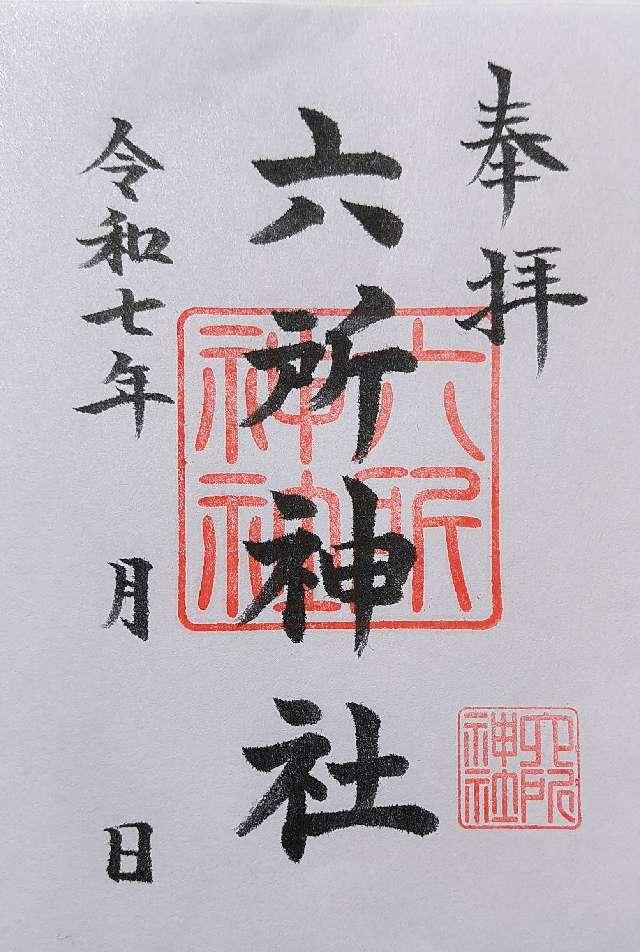 奉拝
六所神社
令和七年 月 日
六所
神社
六所
神社